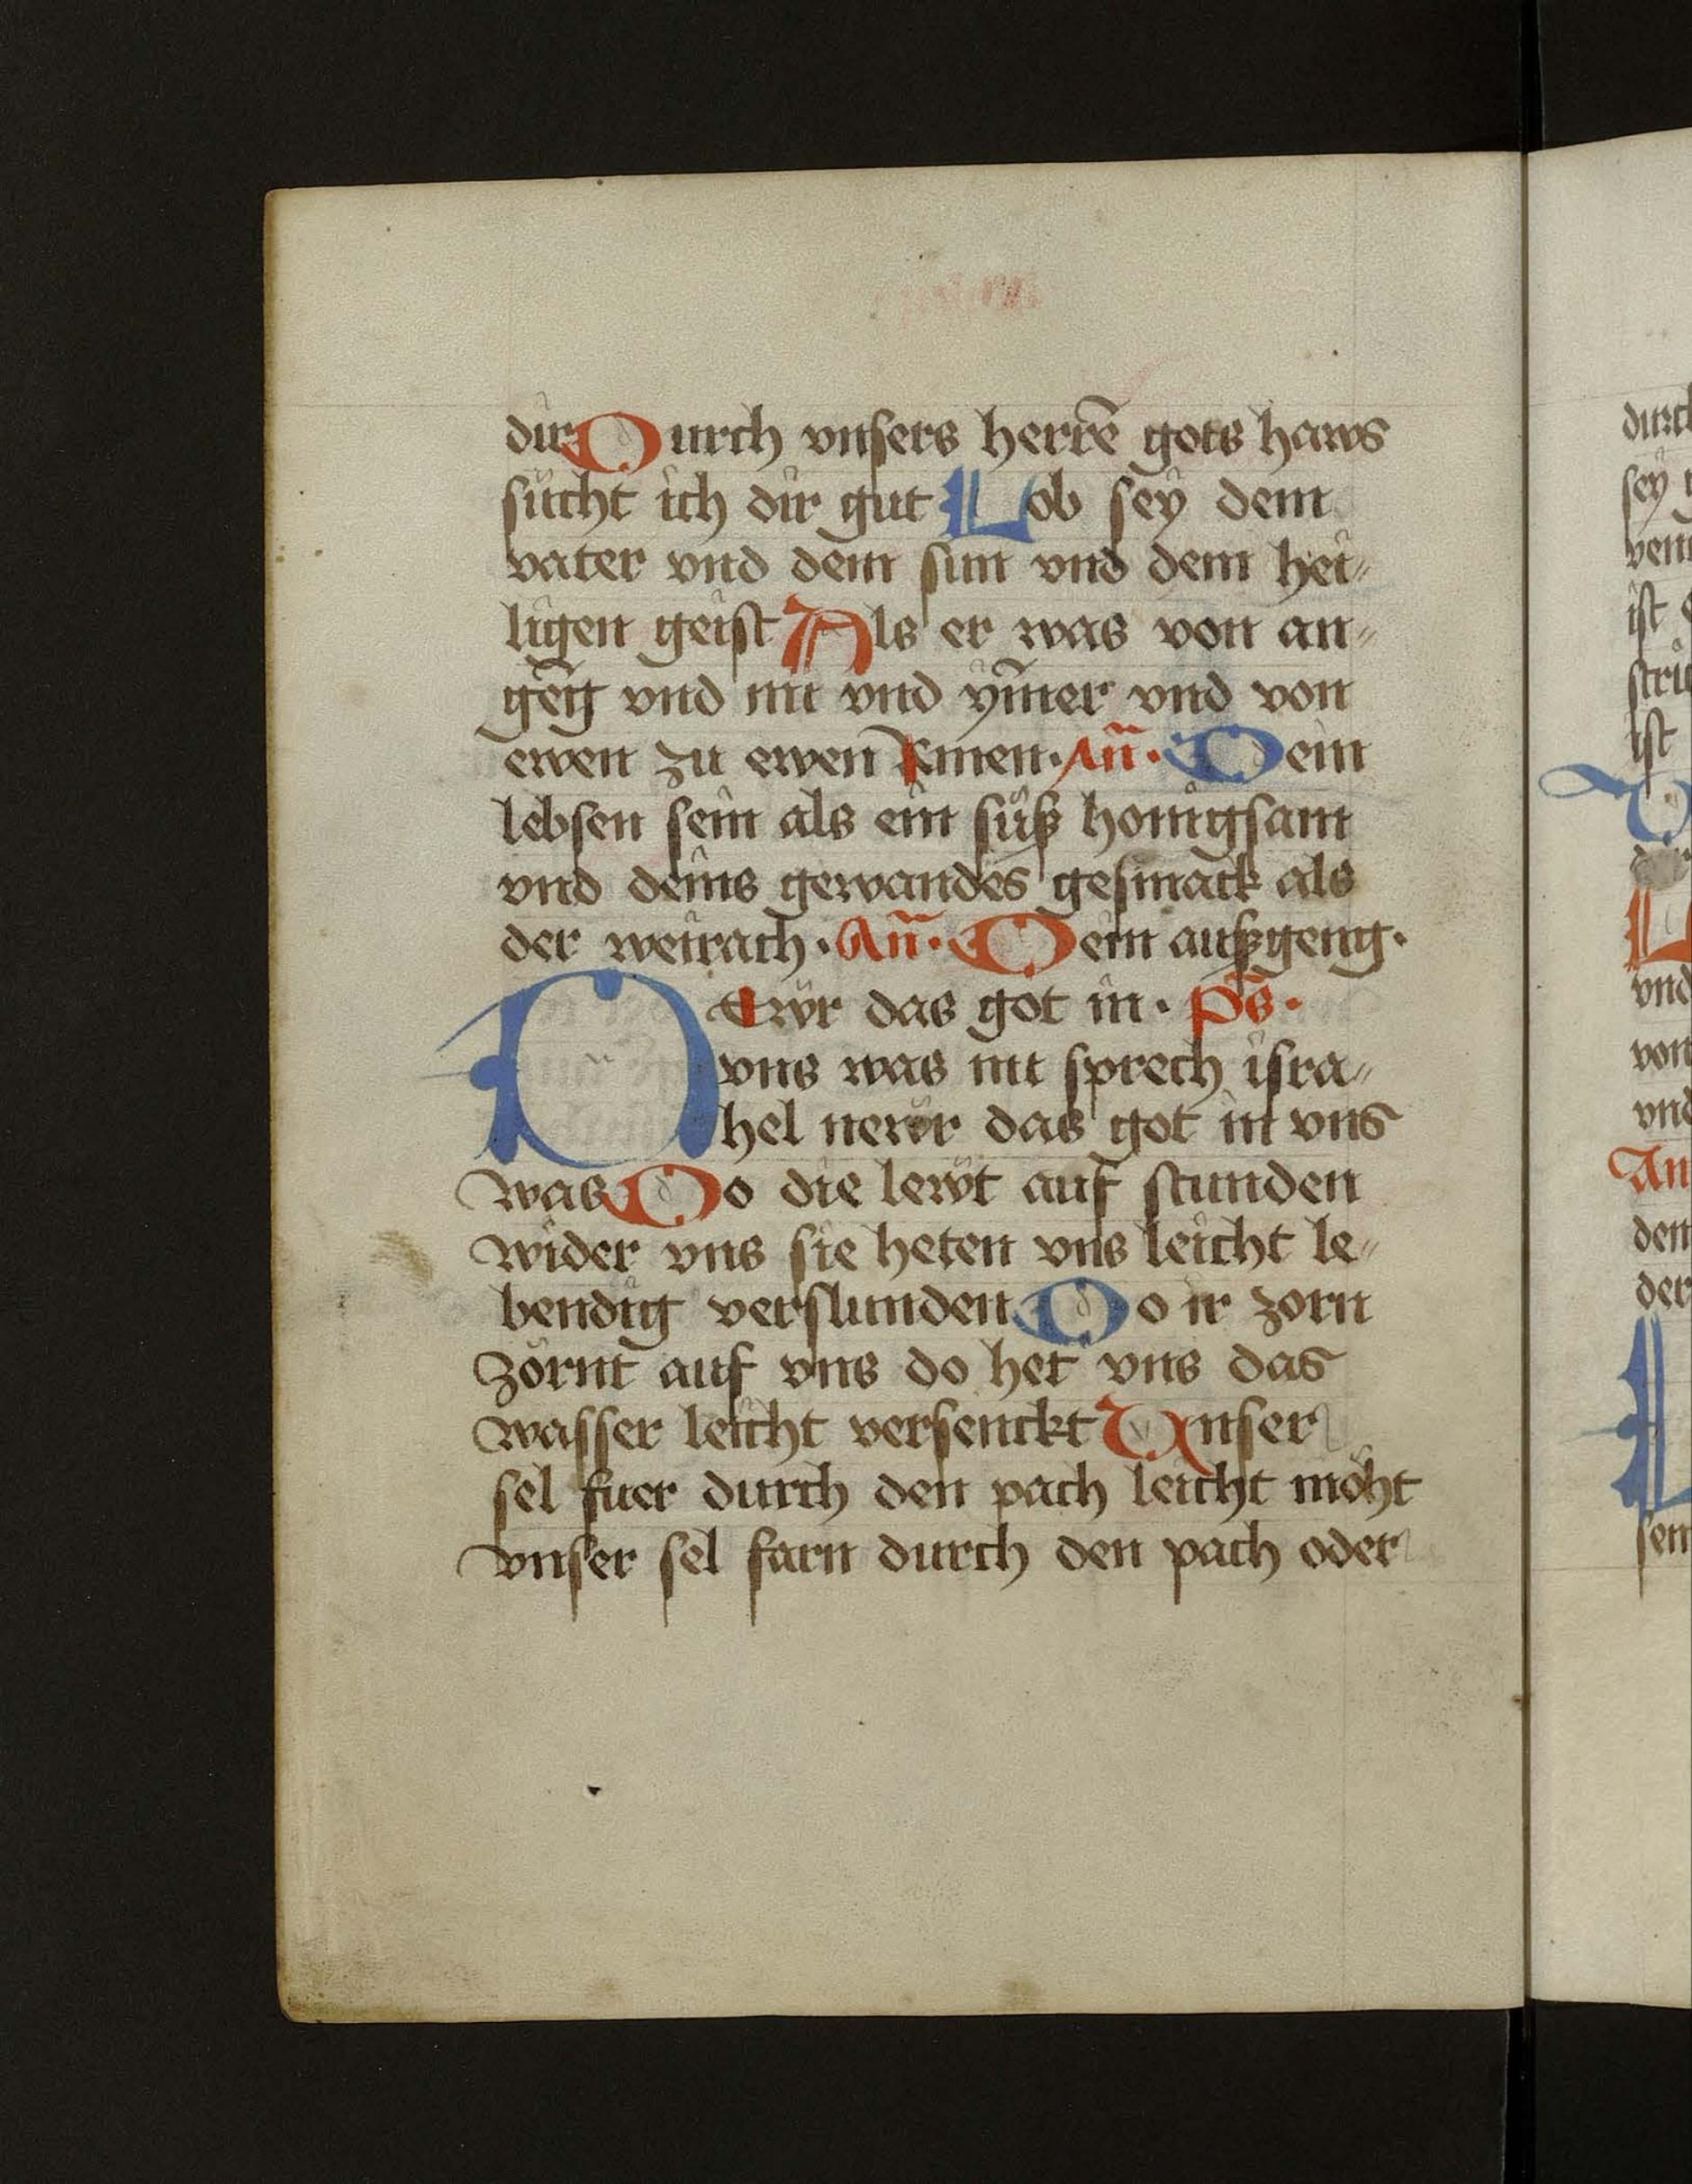 dir Durch vnsers herrē gots haws
sücht ich dir gut Lob sey dem
vater vnd dem sun vnd dem hei⸗
ligen geist Als er was von an⸗
gēg vnd nu vnd ym̄er vnd von
ewen zu ewen Amen· An̄· Dein
lebsen sein als ein süß honigsam
vnd deins gewandes gesmack als
der weirach· An̄· Dein außgeng·
NEwr das got in· Ps̄·
vns was nu sprech isra⸗
hel newr das got in vns
was Do die lewt auf stunden
wider vns sie heten vns leicht le⸗
bendig verslunden Do ir zorn
zörnt auf vns do het vns das
wasser leicht versenckt Vnser
sel fuer durch den pach leicht möht
vnser sel farn durch den pach oder